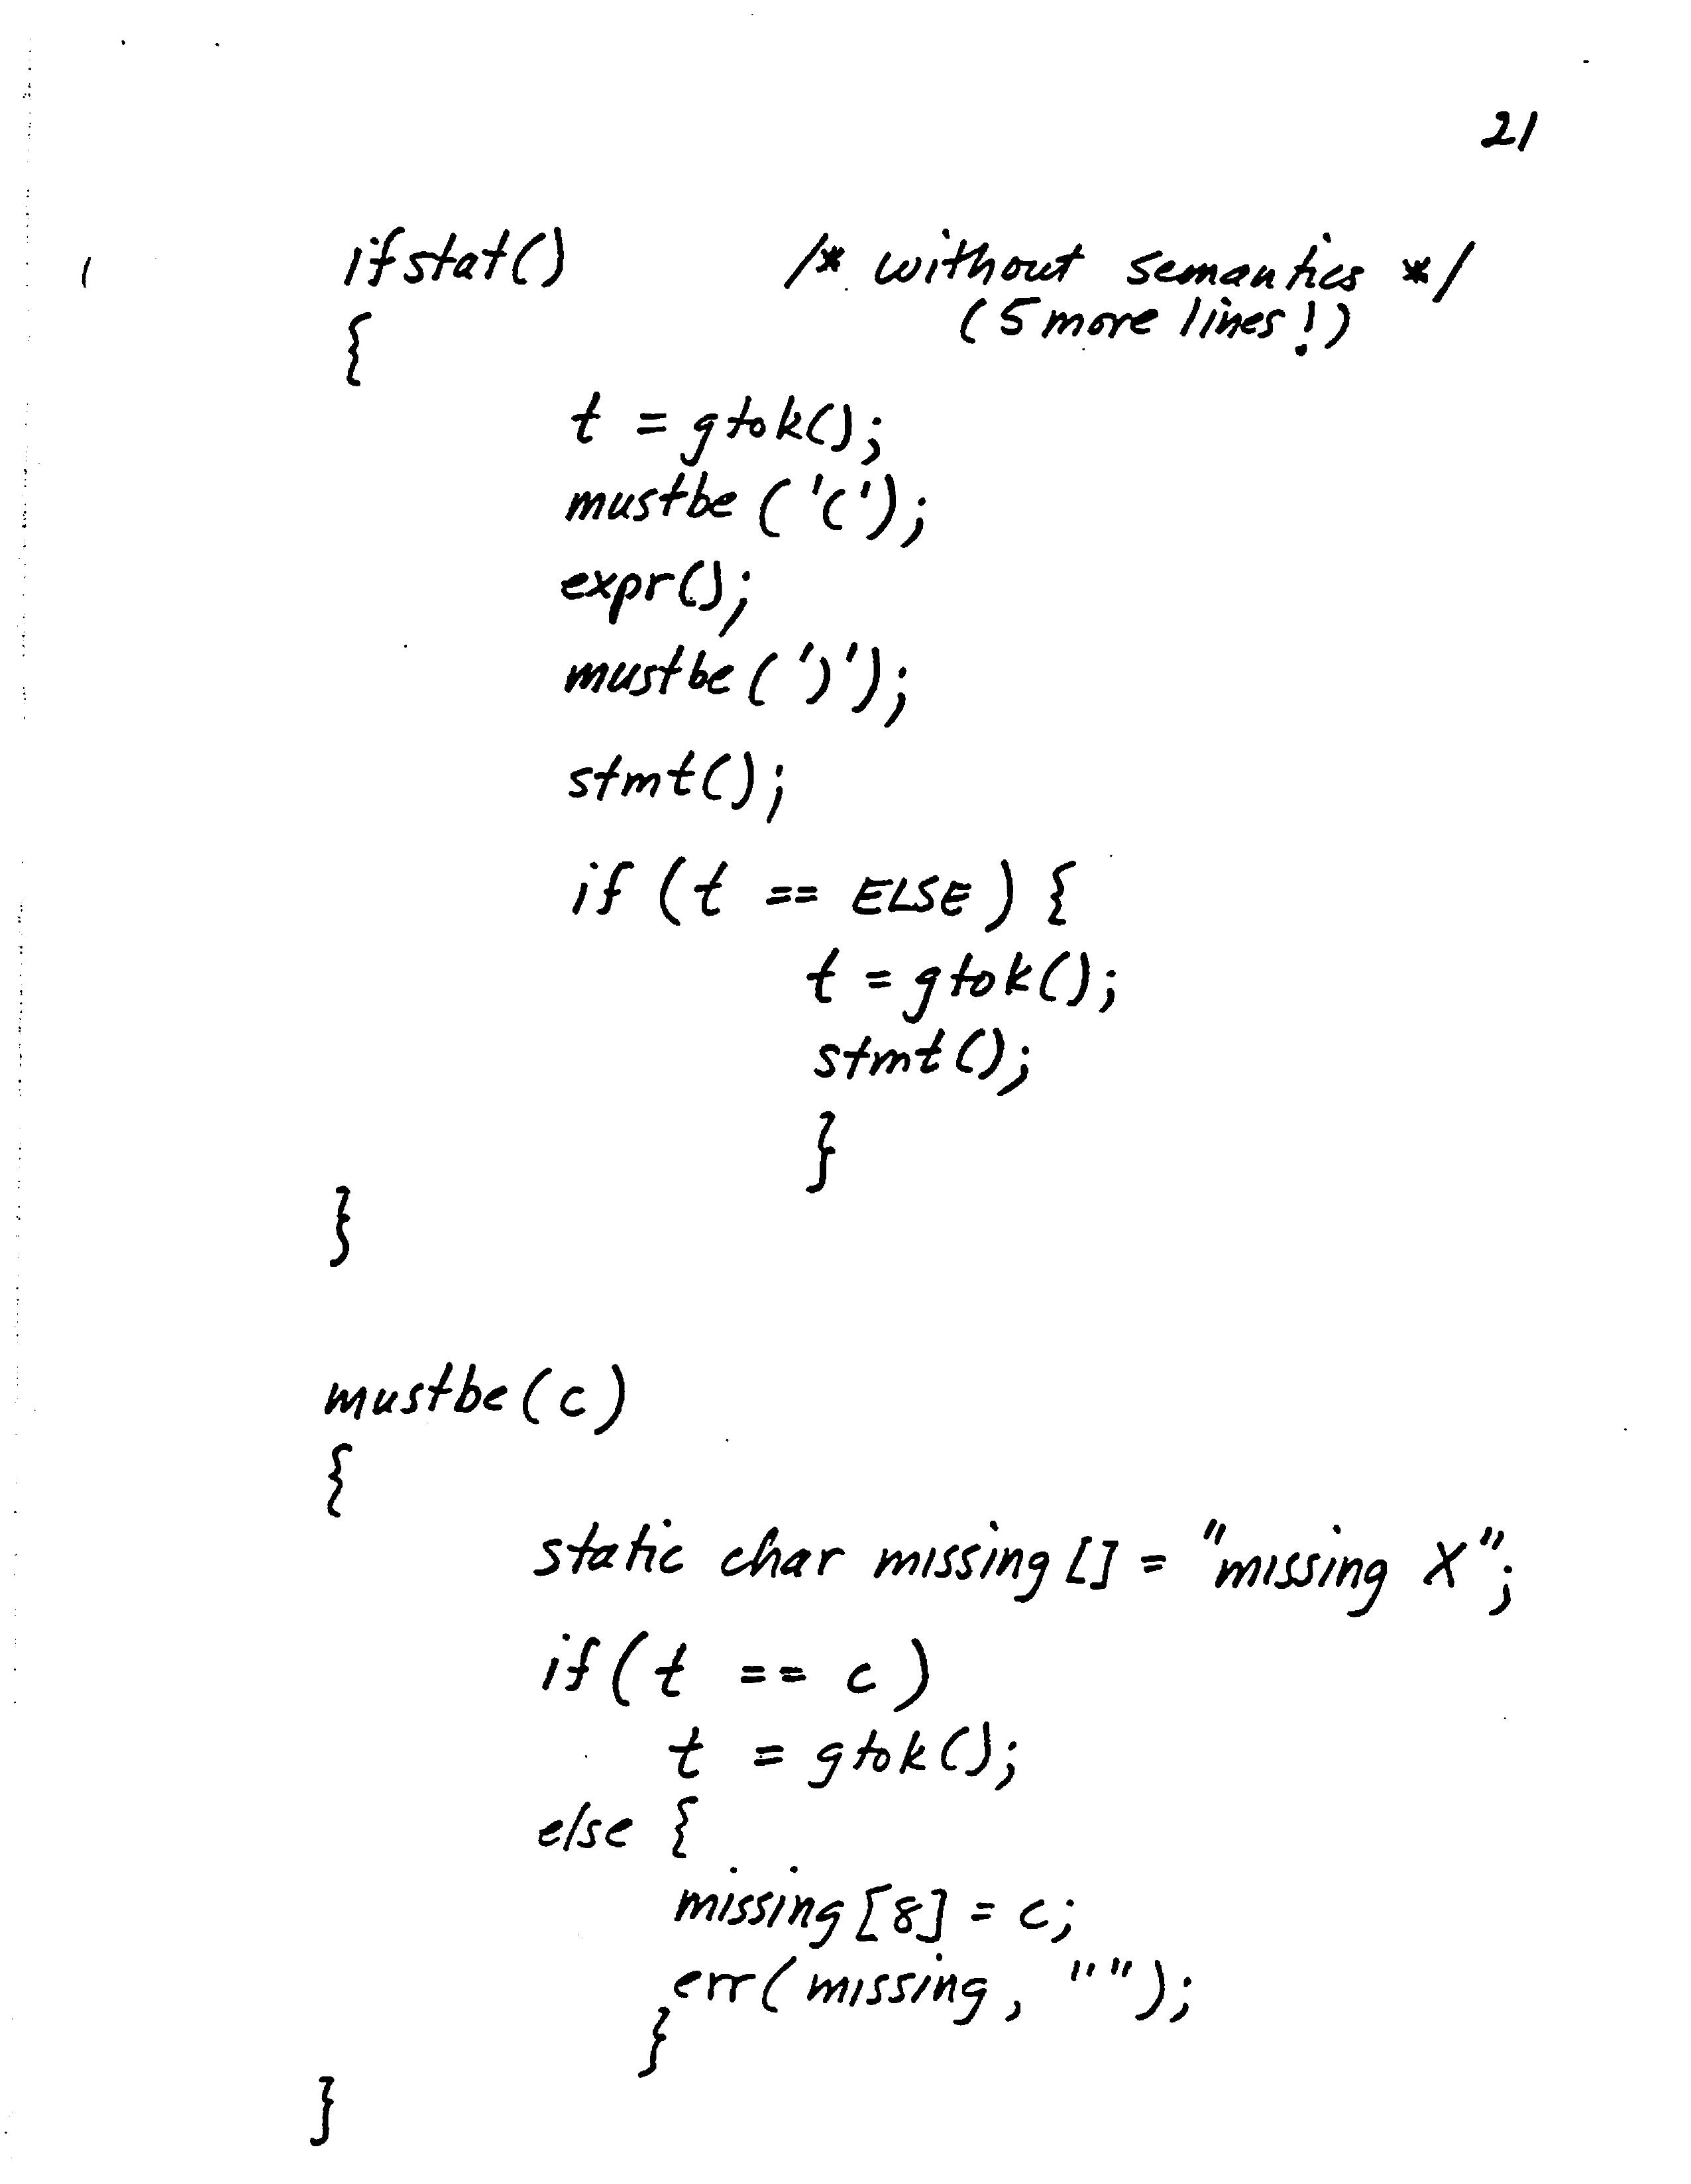 21
ifstat() /* without semantics */
(5 more lines!)
{
t = gtok();
mustbe('(');
expr();
mustbe(')');
stmt();
if (t == ELSE) {
t = gtok();
stmt();
}
}
mustbe(c)
{
static char missing[] = "missing X";
if(t == c)
t = gtok();
else {
missing[8] = c;
err(missing, "");
}
}